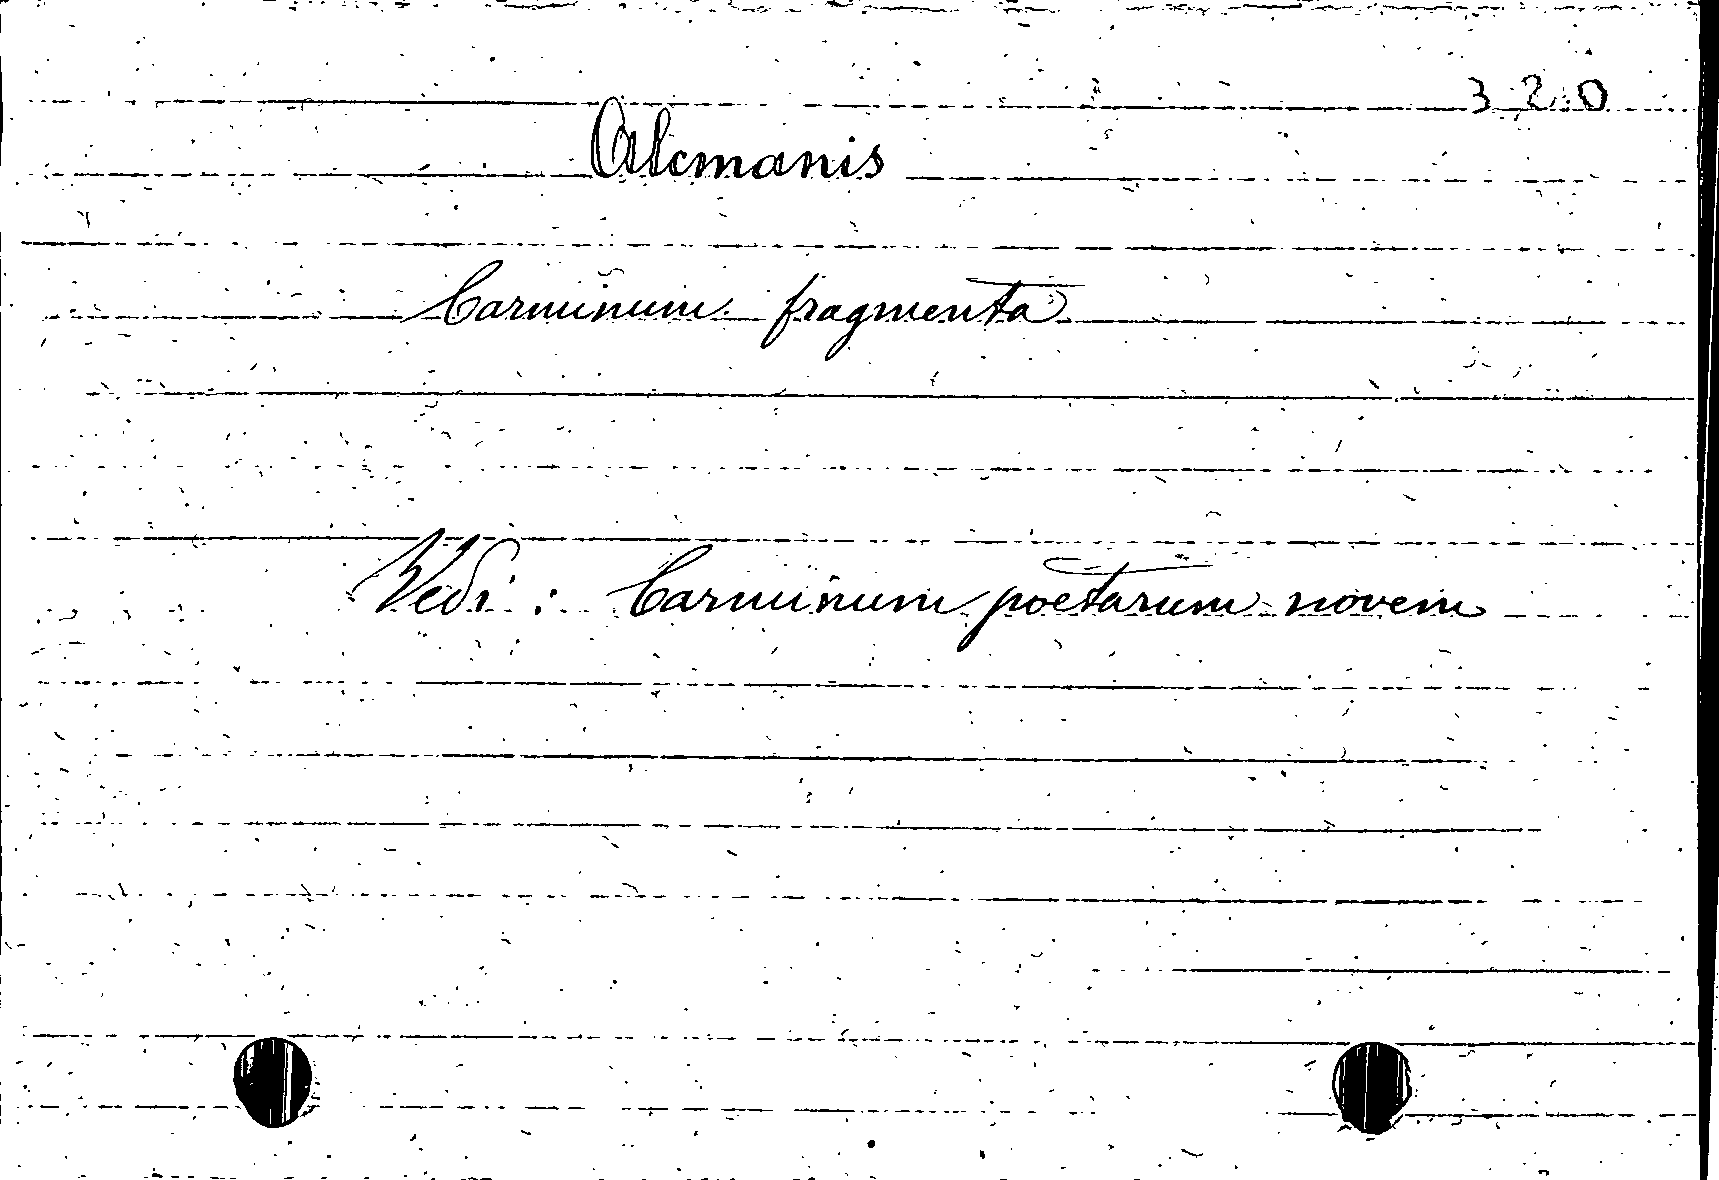 320
Alcmanis
Carminum fragmenta
Vedi: Carminum poetarum novem